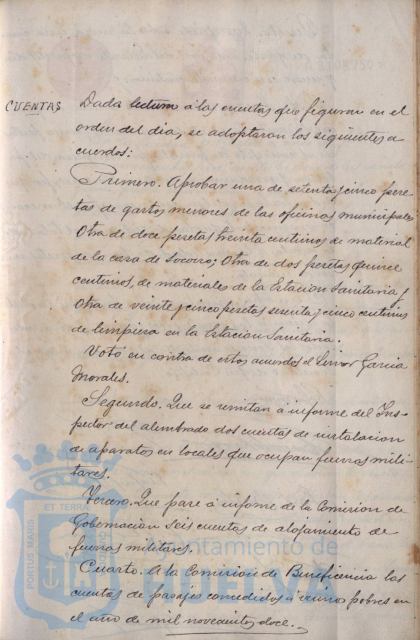 CUENTAS
Dada lectura á las cuentas que figuran en el
orden del dia, se adoptaron los siguientes a
cuerdos:
Primero. Aprobar una de setenta y cinco pese
tas de gastos menores de las oficinas municipales
Otra de doce pesetas treinta centimos de material
de la casa de Socorro; Otra de dos pesetas quince
centimos, de materiales de la Estacion Sanitaria y
Otra de veinte y cinco pesetas sesenta y cinco centimos
de limpieza en la Estacion Sanitaria.
Votó en contra de estos acuerdos el Señor Garcia
Morales.
Segundo. Que se remitan á informe del Ins-
pector del alumbrado dos cuentas de instalacion
de aparatos en locales que ocupan fuerzas mili-
tares.
Tercero. Que pase á informe de la Comision de
Gobernacion seis cuentas de alojamiento de
fuerzas militares.
Cuarto. A la Comision de Beneficencia las
cuentas de pasajes concedidos á pobres en
el año de mil novecientos doce.
PORTUS MARIS ET TERRA
Ayuntamiento de